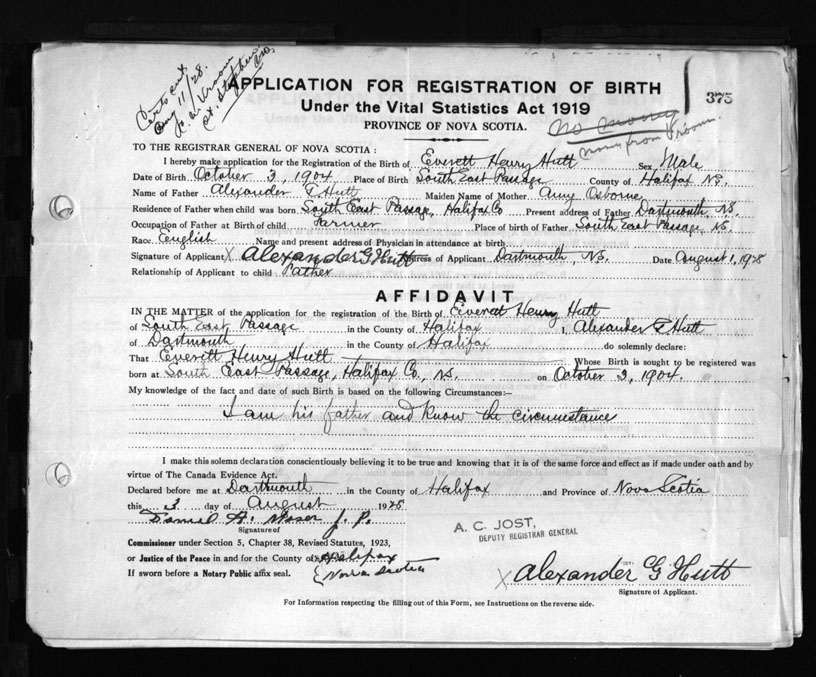 Certs out
Aug 11/28.
St. Stephen
APPLICATION FOR REGISTRATION OF BIRTH
Under the Vital Statistics Act 1919
PROVINCE OF NOVA SCOTIA.
375
No money
money from Vroom.
TO THE REGISTRAR GENERAL OF NOVA SCOTIA :
I hereby make application for the Registration of the Birth of Everett Henry Hutt Sex Male
Date of Birth October 3, 1904 Place of Birth South East Passage County of Halifax N.S.
Name of Father Alexander G Hutt Maiden Name of Mother Amy Osborne
Residence of Father when child was born South East Passage, Halifax Co Present address of Father Dartmouth, N.S.
Occupation of Father at Birth of child Farmer Place of birth of Father South East Passage N.S.
Race English Name and present address of Physician in attendance at birth
Signature of Applicant X Alexander G Hutt Address of Applicant Dartmouth, N.S. Date August 1, 1928
Relationship of Applicant to child Father
AFFIDAVIT
IN THE MATTER of the application for the registration of the Birth of Everett Henry Hutt
of South East Passage in the County of Halifax I, Alexander G Hutt
of Dartmouth in the County of Halifax do solemnly declare:
That Everett Henry Hutt Whose Birth is sought to be registered was
born at South East Passage, Halifax Co., N.S. on October 3, 1904.
My knowledge of the fact and date of such Birth is based on the following Circumstances:—
I am his father and know the circumstance
I make this solemn declaration conscientiously believing it to be true and knowing that it is of the same force and effect as if made under oath and by
virtue of The Canada Evidence Act.
Declared before me at Dartmouth in the County of Halifax and Province of Nova Scotia
this 3 day of August 1928
A. Moser J. P.
Signature of
A. C. JOST,
DEPUTY REGISTRAR GENERAL
Commissioner under Section 5, Chapter 38, Revised Statutes, 1923,
or Justice of the Peace in and for the County of Halifax
Nova Scotia
If sworn before a Notary Public affix seal.
X Alexander G Hutt
Signature of Applicant.
For Information respecting the filling out of this Form, see Instructions on the reverse side.